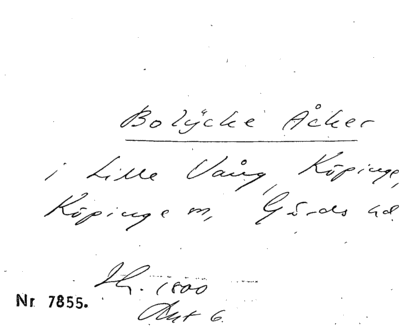 Bolycke Åker
i Lille Vång, Köpinge,
Köpinge sn, Gärds hd.
1800
Akt 6
Nr 7855.